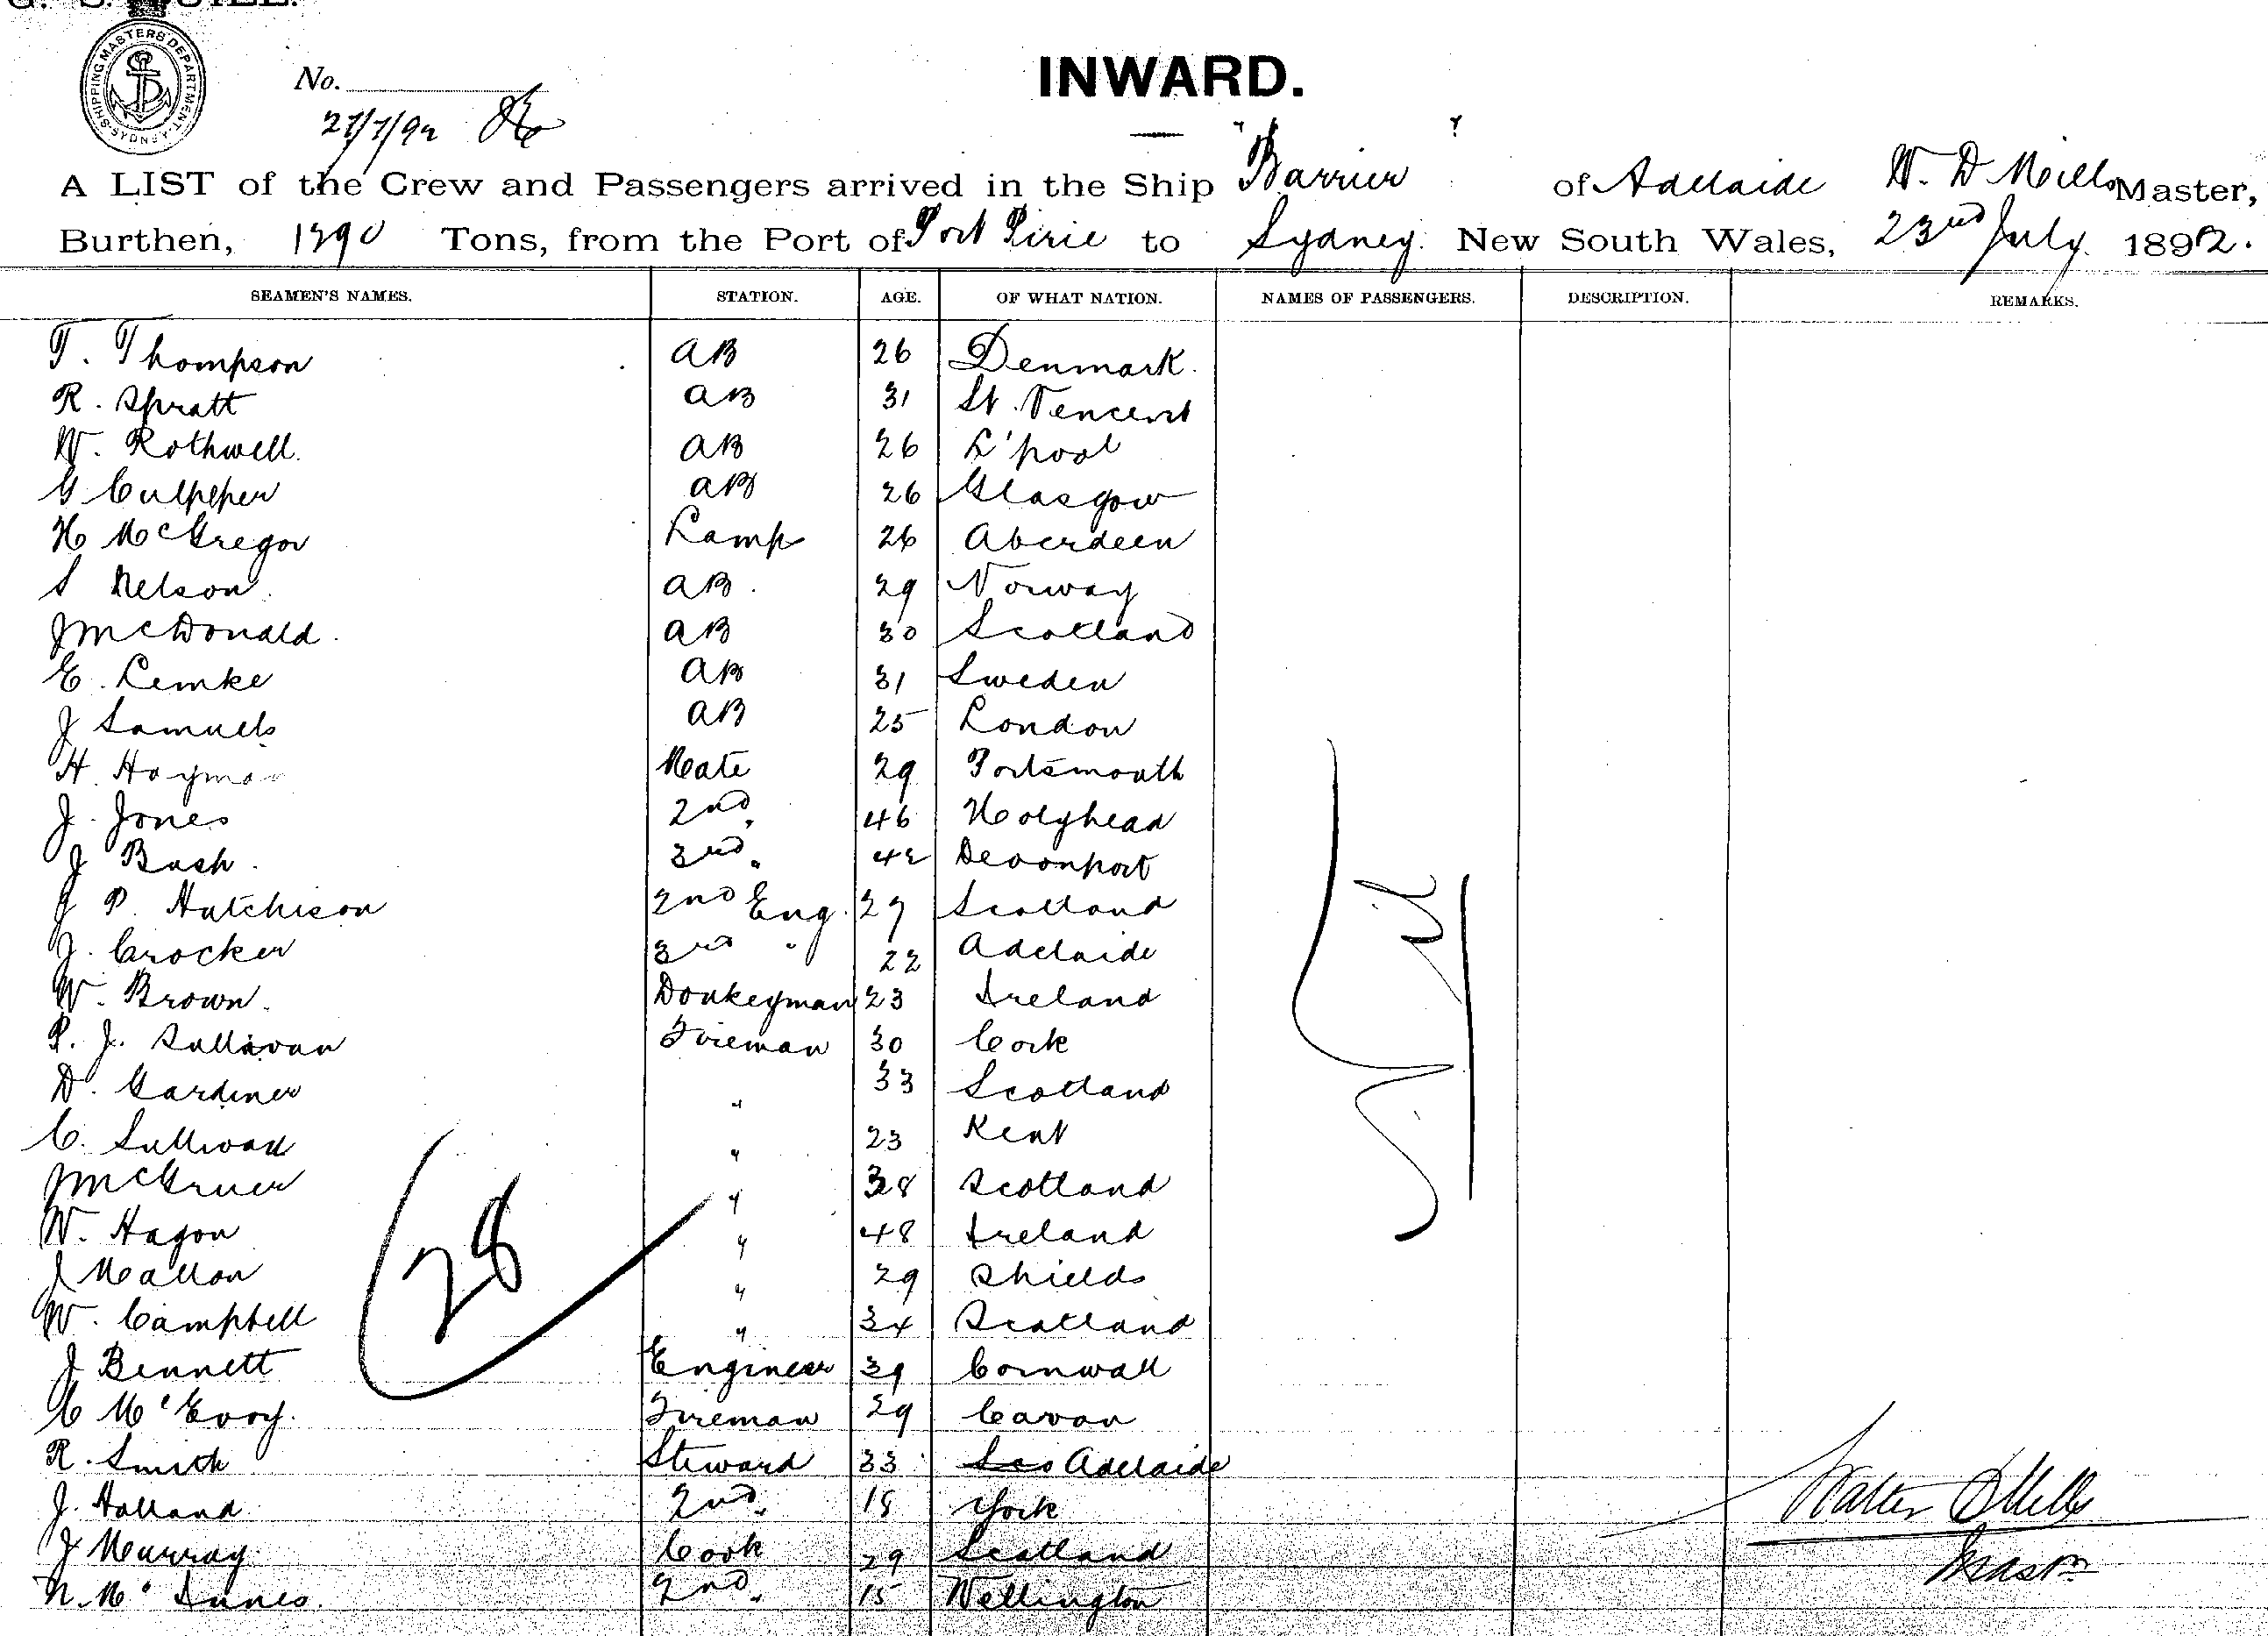 SHIPPING MASTERS DEPARTMENT. SYDNEY.
No.
INWARD.
27/7/92
A LIST of the Crew and Passengers arrived in the Ship "Barrier" of Adelaide W. D Mills Master,
Burthen, 1290 Tons, from the Port of Port Pirie to Sydney. New South Wales, 23rd July. 1892.
SEAMEN'S NAMES. STATION. AGE. OF WHAT NATION. NAMES OF PASSENGERS. DESCRIPTION. REMARKS.
T. Thompson AB 26 Denmark.
R. Spratt AB 31 St. Vencent
W. Rothwell. AB 26 L'pool
G Culpeper AB 26 Glasgow
H McGregor Lamp 26 Aberdeen
S Nelson. AB. 29 Norway
J McDonald. AB 30 Scotland
E. Lemke AB 31 Sweden
J Samuels AB 25 London
H. Hayman Mate 29 Portsmouth
J. Jones 2nd " 46 Holyhead
J Bush. 3rd " 42 Devonport
J P. Hutchison 2nd Eng. 27 Scotland
J. Crocker 3rd " 22 Adelaide
W. Brown. Donkeyman 23 Ireland
P. J. Sullivan Fireman 30 Cork
D. Gardiner " 33 Scotland
C. Sullivan " 23 Kent
J McGruer " 38 Scotland
W. Hagon " 48 Ireland
J Mallon " 29 Shields
W. Campbell " 34 Scotland
J Bennett Engineer 39 Cornwall
C McEvoy. Fireman 29 Cavan
R. Smith Steward 33 Sco Adelaide
J. Holland 2nd " 18 York
J Murray Cook 29 Scotland
N. McInnes. 2nd " 15 Wellington
28
Nil
Walter D Mills
Master